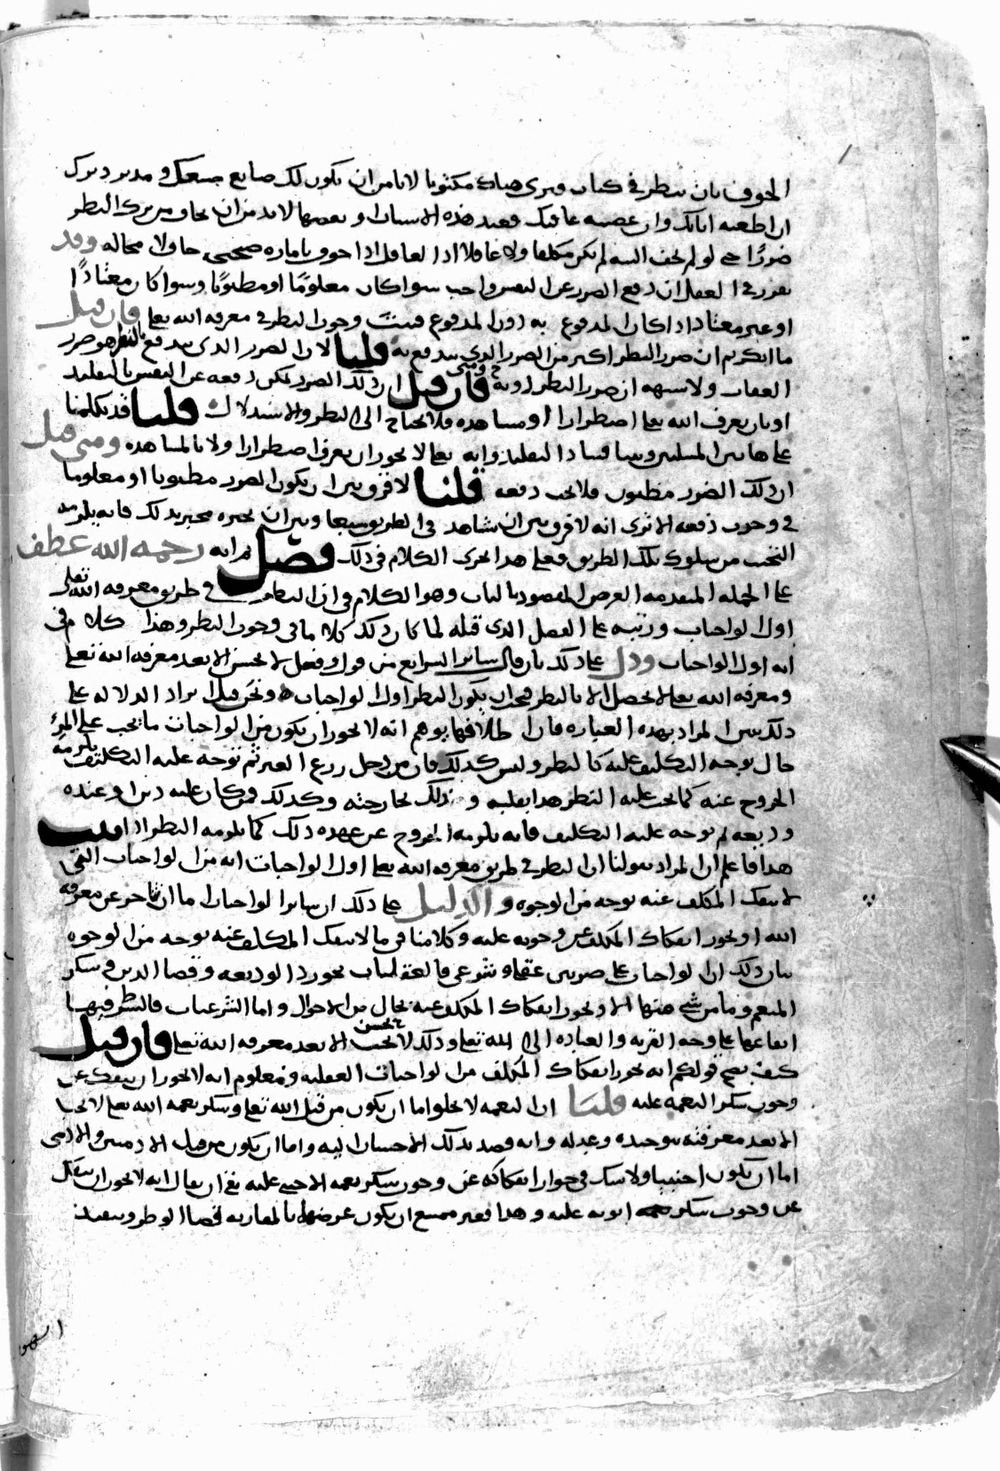 الخوف بان ينظر في كتاب فيرى هناك مكتوبا لا يامن ان يكون لك صانع صنعك و مدبر دبرك
ان اطعته اثابك وان عصيته عاقبك فعند هذه الاسباب او بعضها لا بد من ان يخاف من ترك النظر
ضررًا حتى لو لم يخف البتة لم يكن مكلفا ولا عاقلا اذ العاقل اذا خوف بامارة صحيحة خاف لا محالة وقد
تقرر في العقل ان دفع الضرر عن النفس واجب سوا كان معلومًا او مظنونًا وسوا كان معتادًا
او غير معتاد اذا كان المدفوع به دون المدفوع فثبت وجوب النظر في معرفة الله تعلى فان قيل
ما انكرتم ان ضرر النظر اكبر من الضرر الذي يندفع به قلنا لان الضرر الذي يندفع بالنظر هو ضرر
العقاب ولا شبهه ان ضرر النظر دونه فان قيل ان ذلك الضرر يمكن دفعه عن النفس بالتقليد
او بان يعرف الله تعلى اضطرارا او مشاهدة فلا يحتاج الى النظر والاستدلال قلنا قد تكلمنا
على هاتين المسلتين وبينا فساد التقليد وانه تعلى لا يجوز ان يعرف اضطرارا ولا بالمشاهدة ومتى قيل
ان ذلك الضرر مظنون فلا يجب دفعه قلنا لا فرق بين ان يكون الضرر مظنونا او معلوما
في وجوب دفعه الا ترى انه لا فرق بين ان شاهد في الطريق سبعا وبين ان يخبره مخبر بذلك فانه يلزمه
التجنب من سلوك تلك الطريق فعلى هذا يجرى الكلام في ذلك فصل ثم انه رحمه الله عطف
على الجملة المتقدمة الغرض المقصود بالباب وهو الكلام في ان النظر في طريق معرفة الله تعلى
اول الواجبات ورتبه على الفصل الذي قبله لما كان ذلك كلاما في وجوب النظر وهذا كلام في
انه اول الواجبات ودل على ذلك بان قال ساير الشرايع من قول وفعل لا تحسن الا بعد معرفة الله تعلى
ومعرفة الله تعلى لا تحصل الا بالنظر فيجب ان يكون النظر اول الواجبات ونحن قبل ايراد الدلالة على
ذلك نبين المراد بهذه العبارة فان اطلاقها يوهم انه لا يجوز ان يكون من الواجبات ما يجب على المرء
حال توجه التكليف عليه كالنظر وليس كذلك فان من دخل زرع الغير ثم توجه عليه التكليف يلزمه
الخروج عنه كما يجب عليه النظر هذا بقلبه و ذلك بجارحته وكذلك فمن كان عليه دين او عنده
وديعة ثم توجه عليه التكليف فانه يلزمه الخروج عن عهدة ذلك كما يلزمه النظر اذا ثبت
هذا فاعلم ان المراد بقولنا ان النظر في طريق معرفة الله تعلى اول الواجبات انه من الواجبات التي
لا ينفك المكلف عنه بوجه من الوجوه و الدليل على ذلك ان ساير الواجبات اما ان يتاخر عن معرفة
الله او يجوز انفكاك المكلف عن وجوبه عليه وكلامنا فيما لا ينفك المكلف عنه بوجه من الوجوه
بيان ذلك ان الواجبات على ضربين عقلي وشرعي فالعقليات نحو رد الوديعة وقضا الدين وشكر
المنعم وما من شي منها الا ويجوز انفكاك المكلف عنه بحال من الاحوال واما الشرعيات فالشرط فيها
ايقاعها على وجه القربة والعبادة الى الله تعلى وذلك لا يحسن الا بعد معرفة الله تعلى فان قيل
كيف يصح قولكم انه يجوز انفكاك المكلف من الواجبات العقلية ومعلوم انه لا يجوز ان ينفك عن
وجوب شكر النعمة عليه قلنا ان النعمة لا تخلو اما ان يكون من قبل الله تعلى وشكر نعمة الله تعلى لا يجب
الا بعد معرفته بتوحيده وعدله وانه قصد بذلك الاحسان اليه واما ان يكون من قبل الادميين والادمي
اما ان يكون اجنبيا ولا شك في جواز انفكاكه عن وجوب شكر نعمة الاجنبي عليه بقى ان يقال انه لا يجوز ان ينفك
عن وجوب شكر نعمة ابويه عليه وهذا فغير ممتنع ان يكون غرضهما بالمقاربة قضا الوطر وتنفيذ